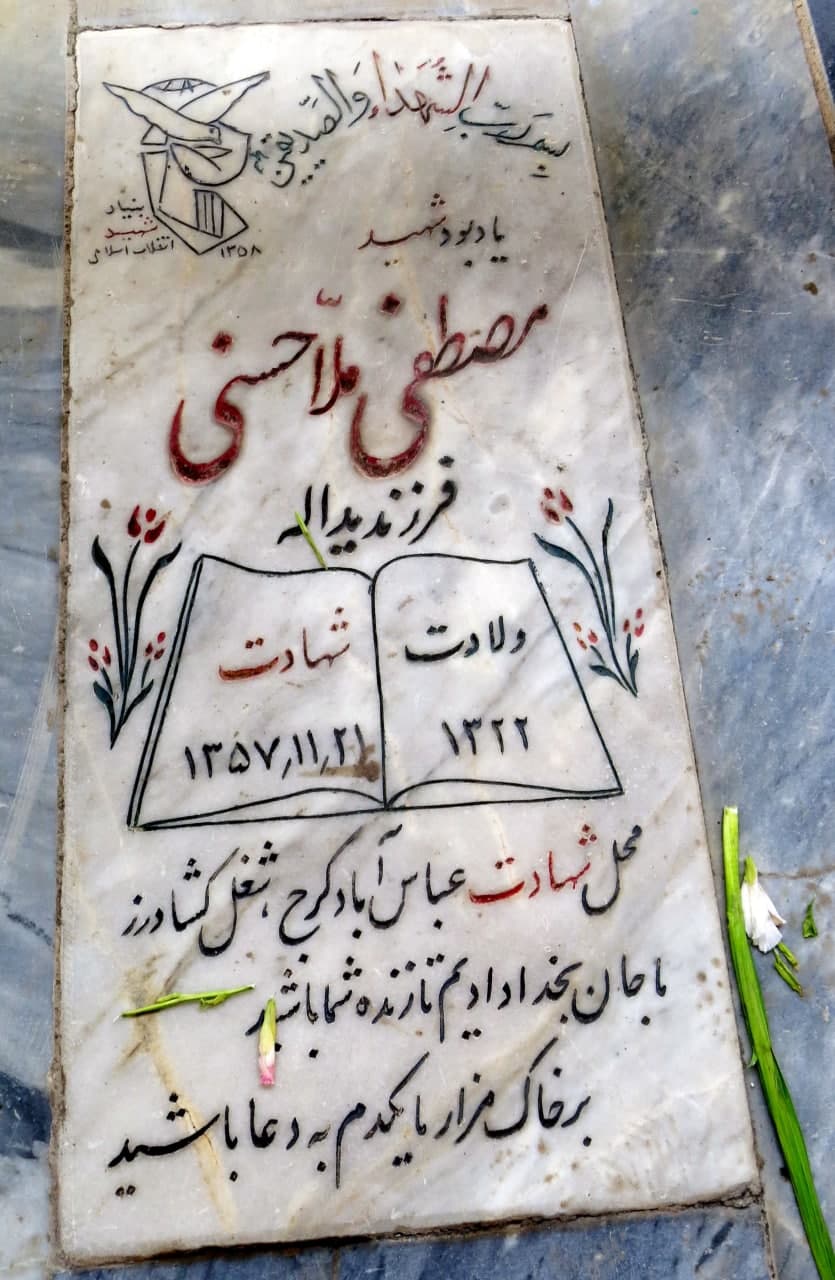 بسم رب الشهداء والصدیقین
بنیاد
شهید
انقلاب اسلامی
۱۳۵۸
یادبود شهید
مصطفی ملّاحسنی
فرزند یداله
ولادت
۱۳۲۲
شهادت
۱۳۵۷٫۱۱٫۲۱
محل شهادت عباس آباد کرج، شغل کشاورز
ما جان بخدا دادیم تا زنده شما باشید
بر خاک مزار ما یکدم به دعا باشید